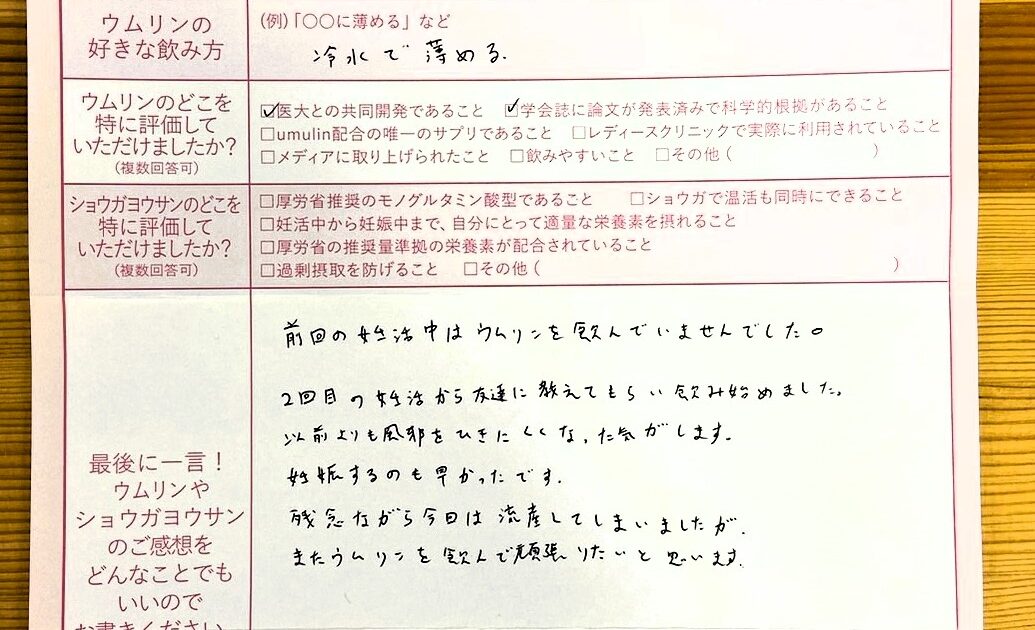 ウムリンの
好きな飲み方
(例)「〇〇に薄める」など
冷水で薄める.
ウムリンのどこを
特に評価して
いただけましたか?
(複数回答可)
☑医大との共同開発であること ☑学会誌に論文が発表済みで科学的根拠があること
□umulin配合の唯一のサプリであること □レディースクリニックで実際に利用されていること
□メディアに取り上げられたこと □飲みやすいこと □その他 ( )
ショウガヨウサンのどこを
特に評価して
いただけましたか?
(複数回答可)
□厚労省推奨のモノグルタミン酸型であること □ショウガで温活も同時にできること
□妊活中から妊娠中まで、自分にとって適量な栄養素を摂れること
□厚労省の推奨量準拠の栄養素が配合されていること
□過剰摂取を防げること □その他 ( )
最後に一言!
ウムリンや
ショウガヨウサン
のご感想を
どんなことでも
いいので
お書きください。
前回の妊活中はウムリンを飲んでいませんでした。
2回目の妊活から友達に教えてもらい飲み始めました。
以前よりも風邪をひきにくくなった気がします.
妊娠するのも早かったです.
残念ながら今回は流産してしまいましたが.
またウムリンを飲んで頑張りたいと思います.